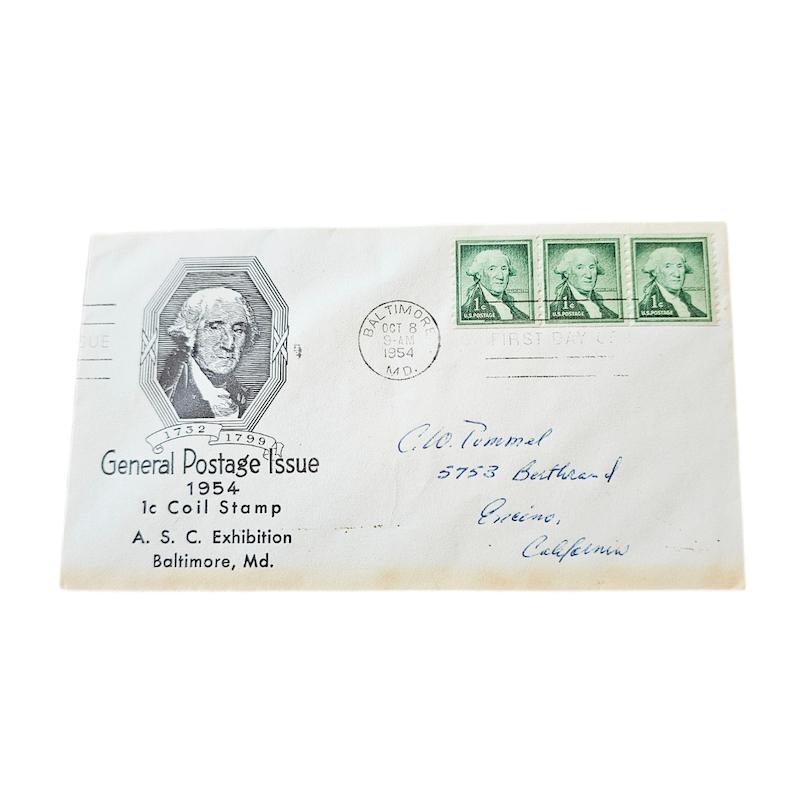 1732 1799
General Postage Issue
1954
1c Coil Stamp
A. S. C. Exhibition
Baltimore, Md.
BALTIMORE
OCT 8
9-AM
1954
MD.
1¢ 1¢ 1¢
U.S. POSTAGE U.S. POSTAGE U.S. POSTAGE
FIRST DAY OF
SUE
C.W. Tummel
5753 Berthrand
Encino,
California